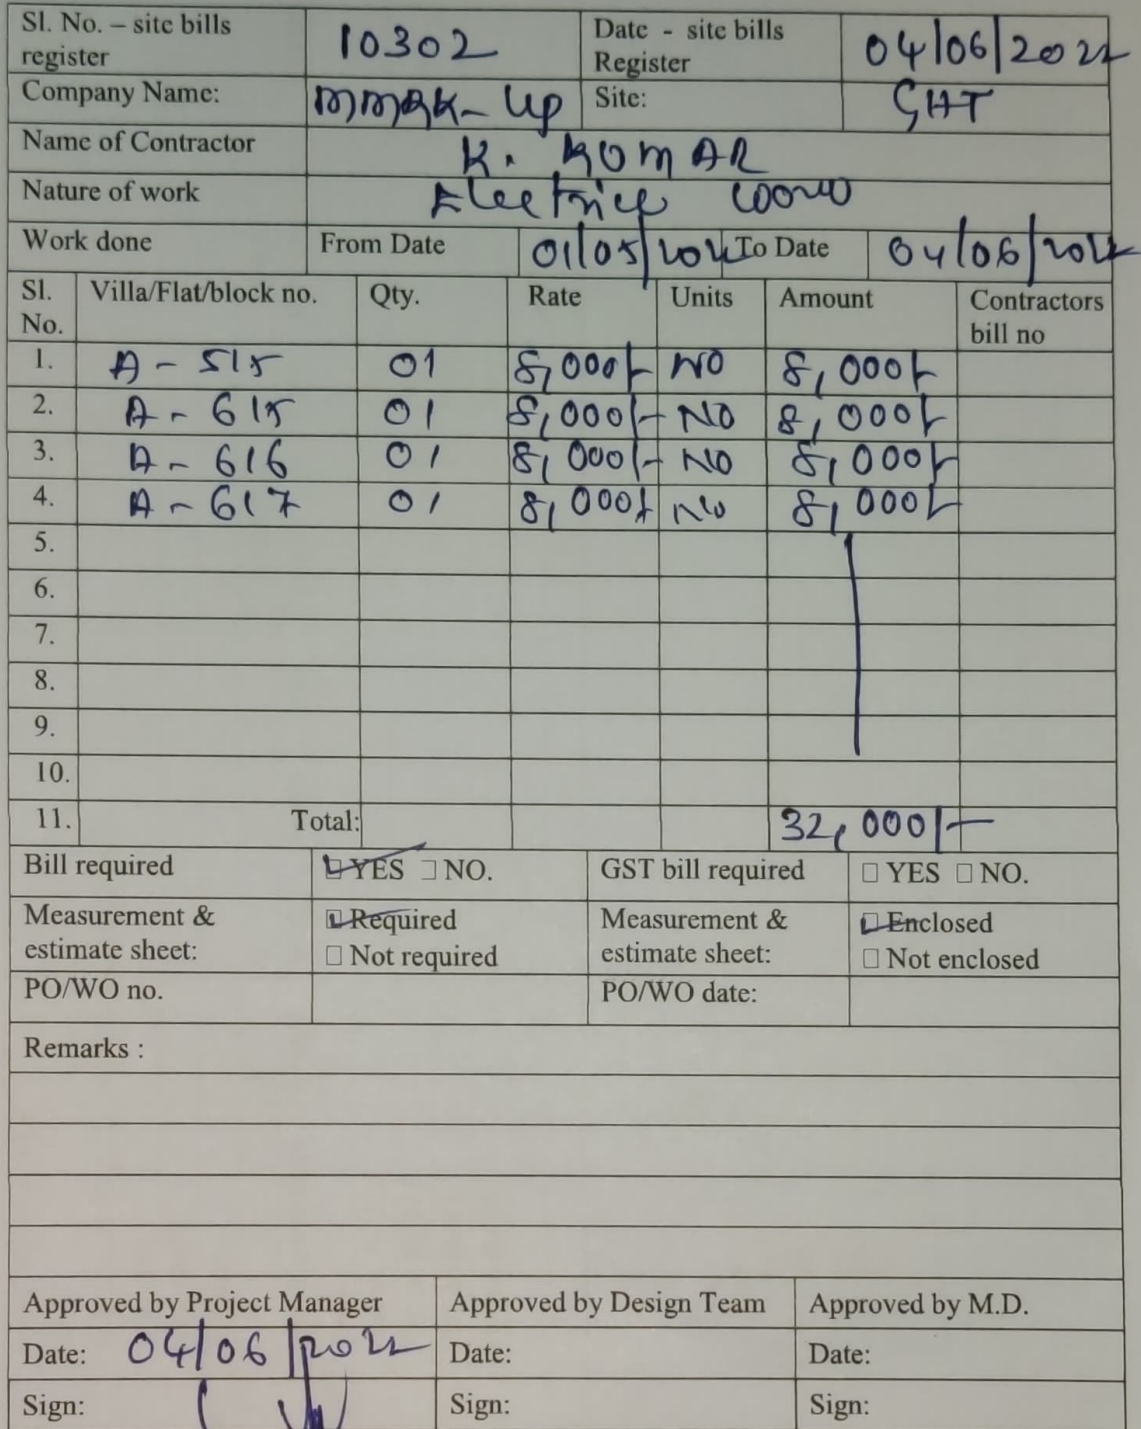 Sl. No. – site bills register 10302 Date - site bills Register 04/06/2022
Company Name: Site: GHT
Name of Contractor K. KUMAR
Nature of work
Work done From Date 01/05/2022 To Date 04/06/2022
Sl. No. Villa/Flat/block no. Qty. Rate Units Amount Contractors bill no
1. A - 515 01 8,000/- NO 8,000/-
2. A - 615 01 8,000/- NO 8,000/-
3. A - 616 01 8,000/- NO 8,000/-
4. A - 617 01 8,000/- No 8,000/-
5.
6.
7.
8.
9.
10.
11. Total: 32,000/-
Bill required YES NO. GST bill required YES NO.
Measurement & estimate sheet: Required Not required Measurement & estimate sheet: Enclosed Not enclosed
PO/WO no. PO/WO date:
Remarks :
Approved by Project Manager Approved by Design Team Approved by M.D.
Date: 04/06/2022 Date: Date:
Sign: Sign: Sign: